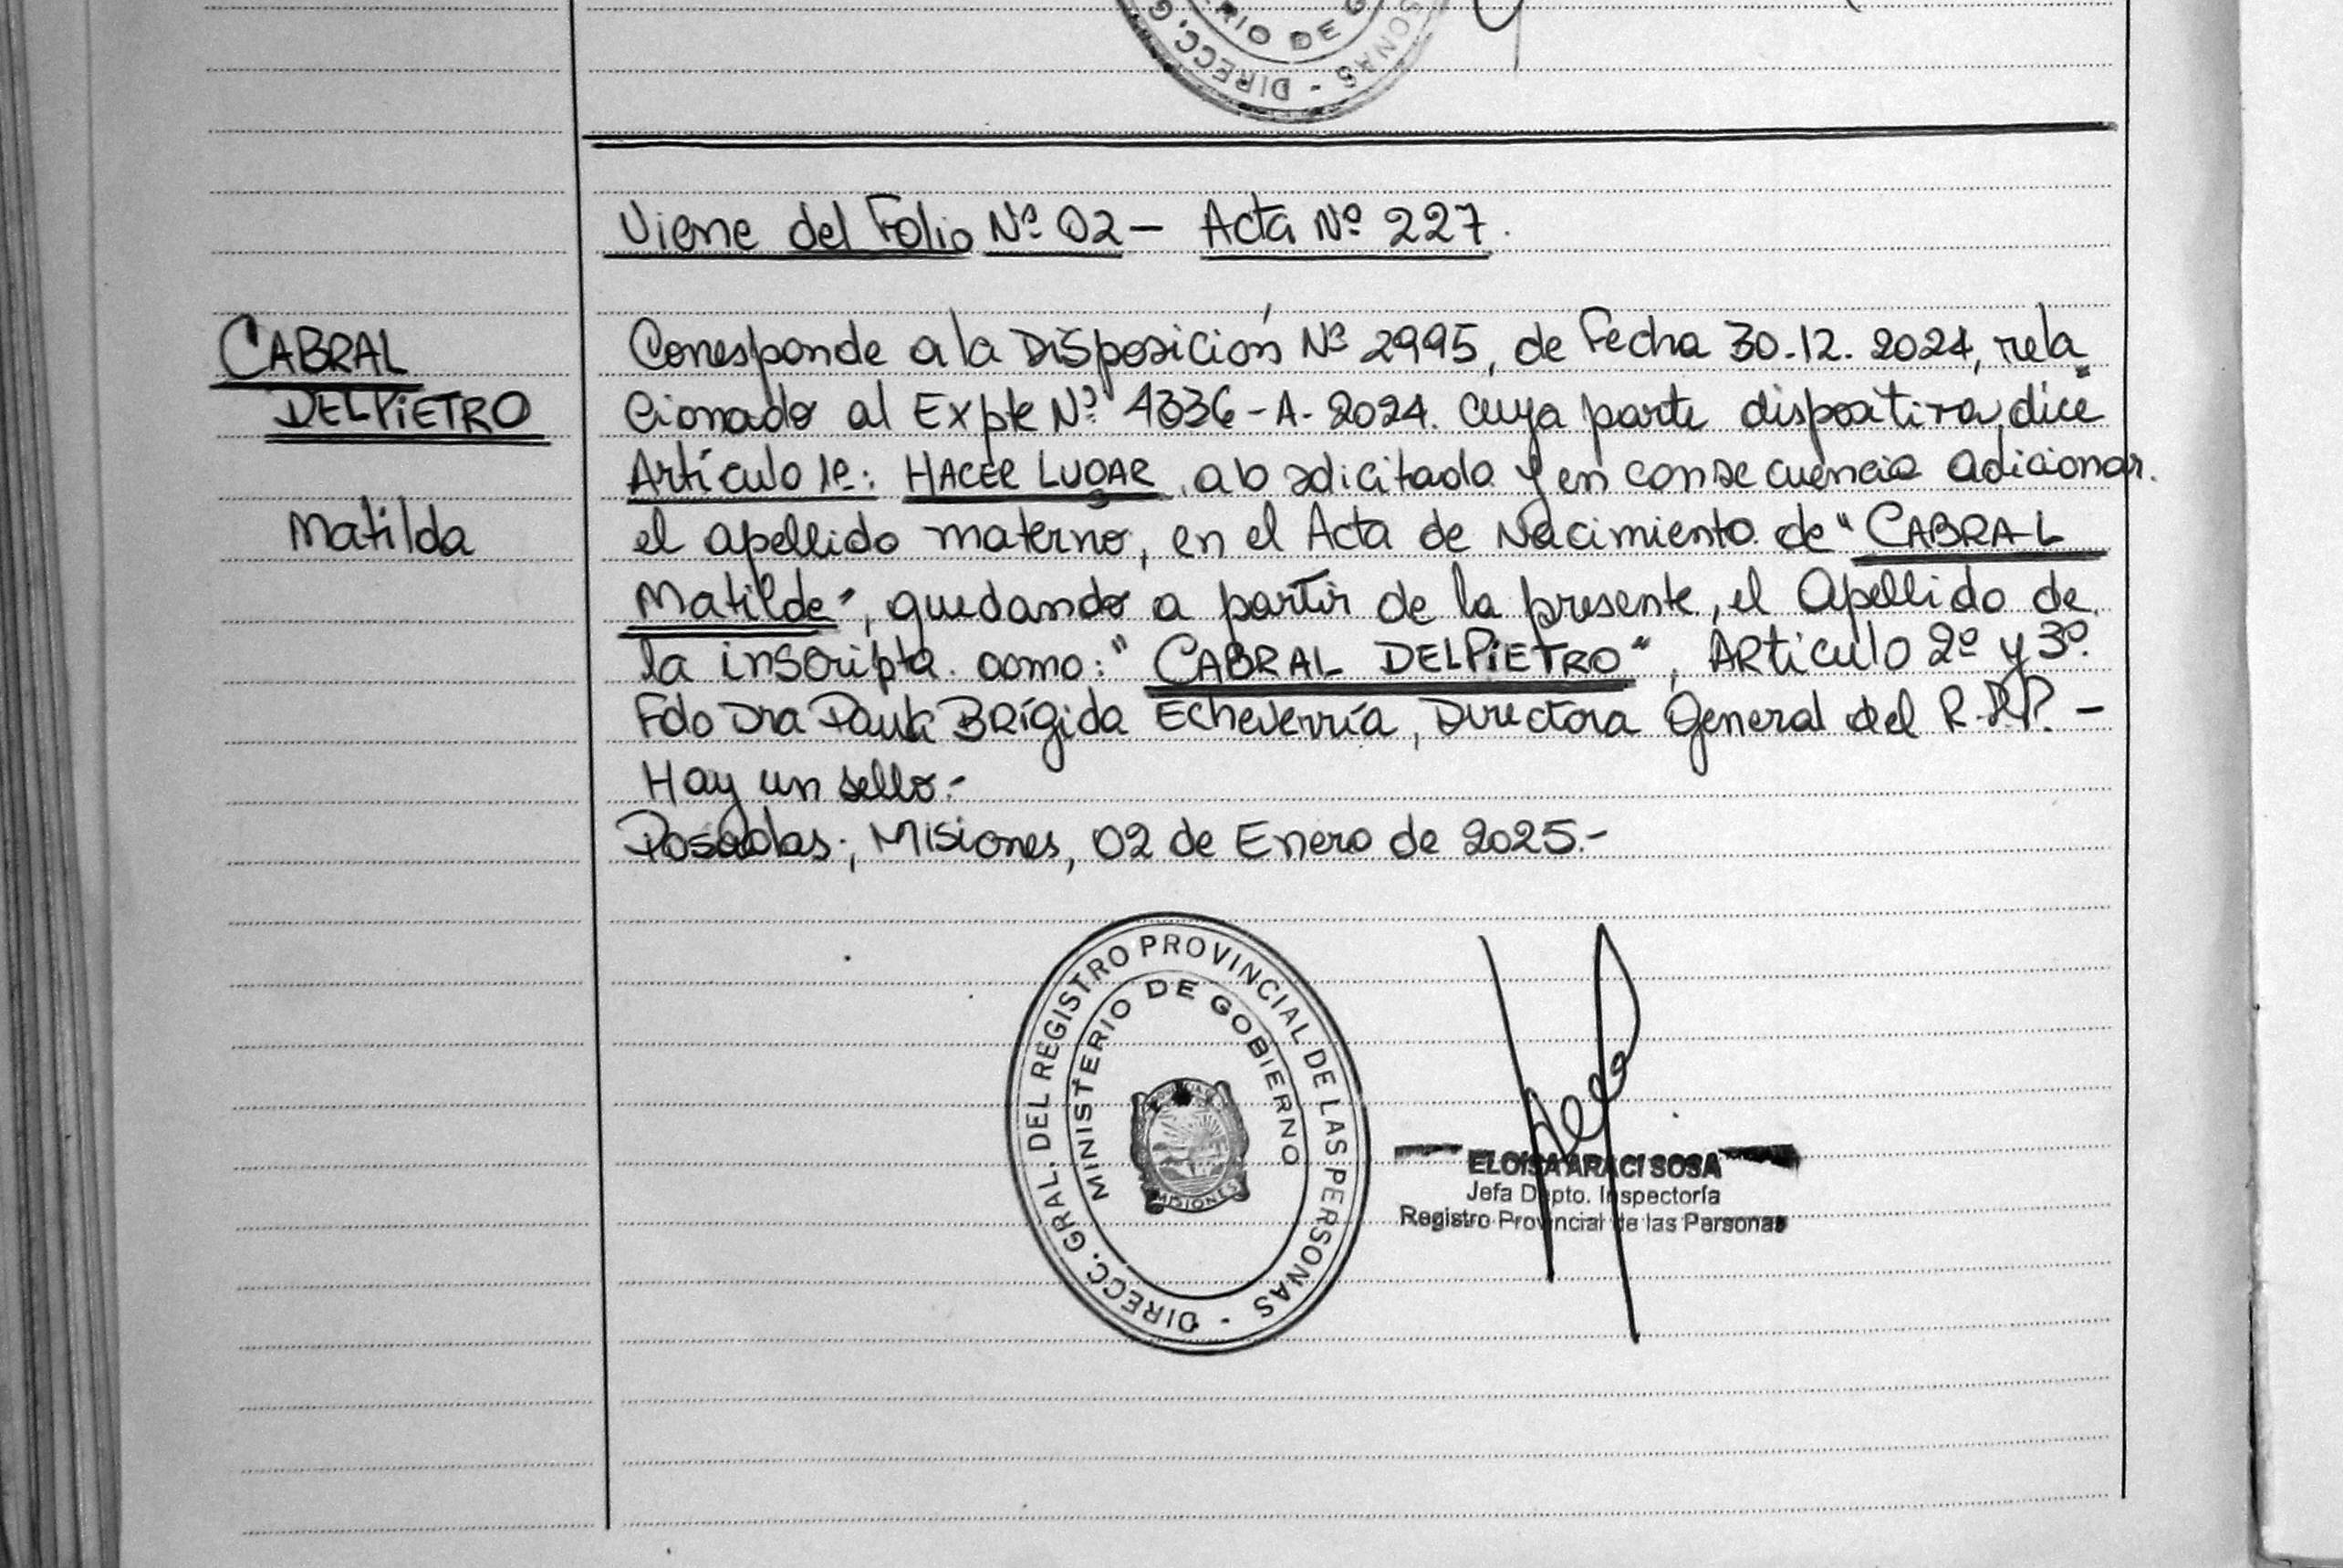 RIO DE G
DIRECC. G
SONAS -
Viene del Folio Nº 02 - Acta Nº 227.
CABRAL
DELPiETRO
Matilda
Corresponde a la Disposición Nº 2995, de Fecha 30.12.2024, rela
cionado al Expte Nº 4336-A-2024. cuya parte dispositiva, dice
Artículo 1º: HACER LUGAR, a lo solicitado y en consecuencia adicionar.
el apellido materno, en el Acta de Nacimiento de "CABRAL
Matilde", quedando a partir de la presente, el Apellido de
la inscripta como: "CABRAL DELPiETRO", Artículo 2º y 3º.
Fdo Dra Paula Brígida Echeverría, Directora General del R.P.P. -
Hay un sello.-
Posadas; Misiones, 02 de Enero de 2025.-
DIRECC. GRAL. DEL REGISTRO PROVINCIAL DE LAS PERSONAS -
MINISTERIO DE GOBIERNO
MISIONES
ELOISA ARACI SOSA
Jefa Depto. Inspectoría
Registro Provincial de las Personas